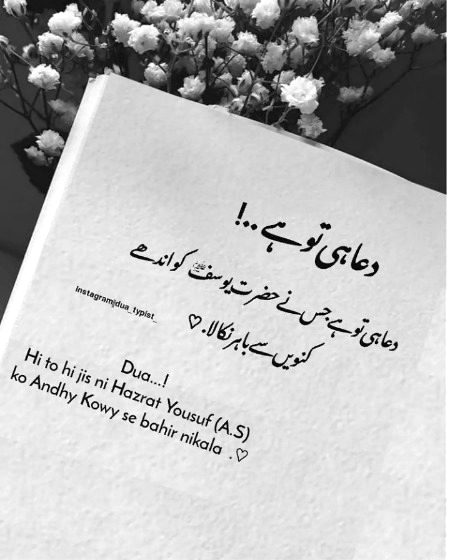 دعا ہی تو ہے ..!
دعا ہی تو ہے جس نے حضرت یوسفؑ کو اندھے
کنویں سے باہر نکالا. ♡
instagram|dua_typist_
Dua...!
Hi to hi jis ni Hazrat Yousuf (A.S)
ko Andhy Kowy se bahir nikala .♡